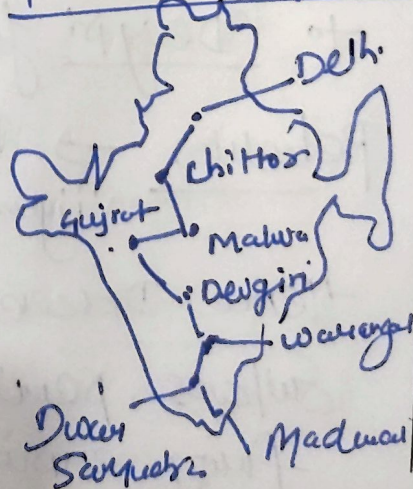 Delhi
Chittor
Gujrat
Malwa
Devgiri
Warangal
Dwar
Samudra
Madurai